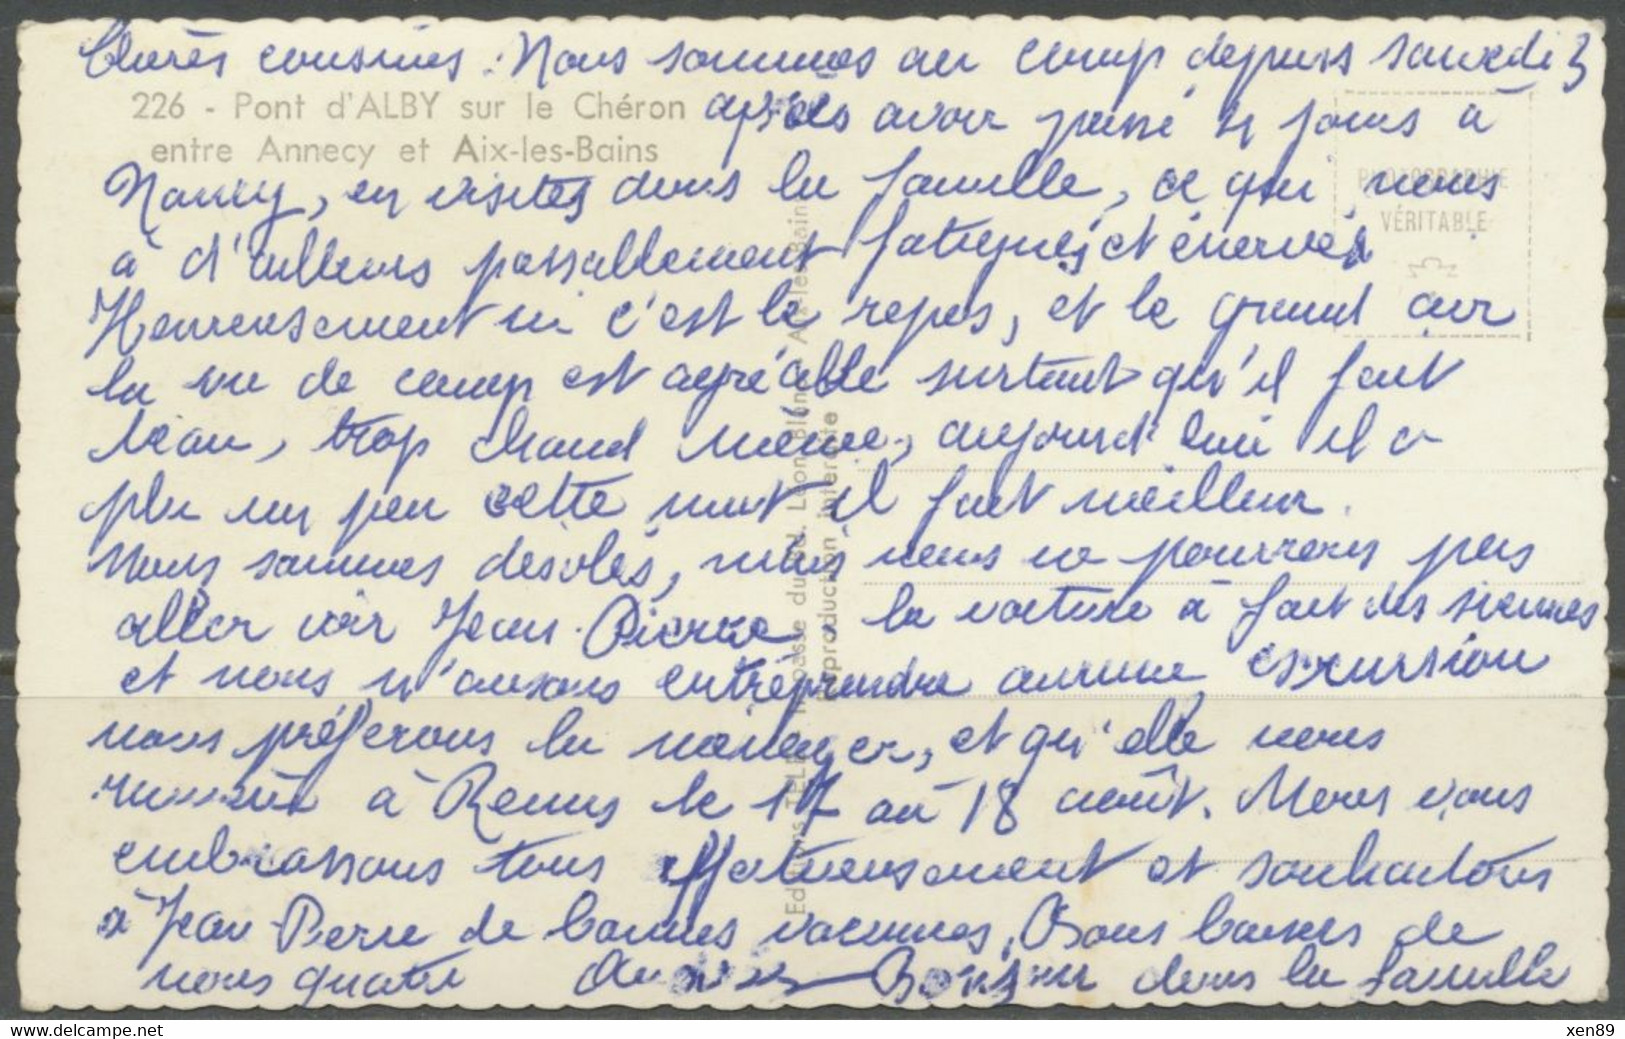 Chères cousines. Nous sommes au camp depuis samedi 3
226 - Pont d'ALBY sur le Chéron
après avoir passé 4 jours à
entre Annecy et Aix-les-Bains
PHOTOGRAPHIE
VÉRITABLE
Nancy, en visites dans la famille, ce qui nous
à d'ailleurs passablement fatigués et énervés
Heureusement ici c'est le repos, et le grand air
la vie de camp est agréable surtout qu'il fait
beau, trop chaud même, aujourd'hui il a
plu un peu cette nuit il fait meilleur.
Nous sommes désolés, mais nous ne pourrons pas
aller voir Jean-Pierre, la voiture à fait des siennes
et nous n'avons entreprendre aucune excursion
nous préférons la ménager, et qu'elle nous
à Reims le 17 au 18 août. Nous vous
embrassons tous affectueusement et souhaitons
à Jean-Pierre de bonnes vacances. Bons baisers de
nous quatre
Bonjour dans la famille
Editions TELE, Impasse du Bd. Léon Blanc, Aix-les-Bains
Reproduction interdite
delcampe.net
xen89